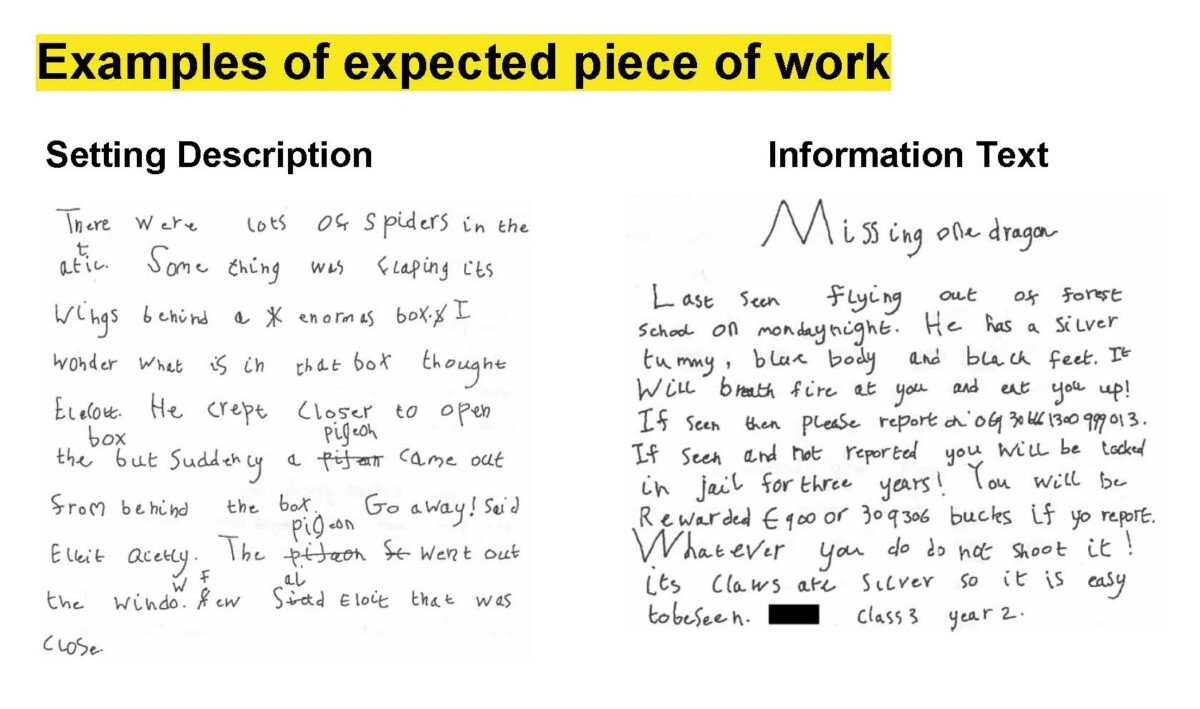 Examples of expected piece of work
Setting Description
There were lots of spiders in the
t
atic. Some thing was flaping its
wings behind a enormas box. I
wonder what is in that box thought
He crept closer to open
box pigeon
the but Suddenly a came out
from behind the box. Go away! Said
pigeon
The went out
w F al
the windo. ew Eloit that was
close.
Information Text
Missing one dragon
Last seen flying out of forest
School on mondaynight. He has a silver
tummy, blue body and black feet. It
will breath fire at you and eat you up!
If seen then please report on
If seen and not reported you will be locked
in jail for three years! You will be
Rewarded £900 or 309306 bucks if yo report.
Whatever you do do not shoot it!
its claws are silver so it is easy
tobeseen. Class 3 year 2.